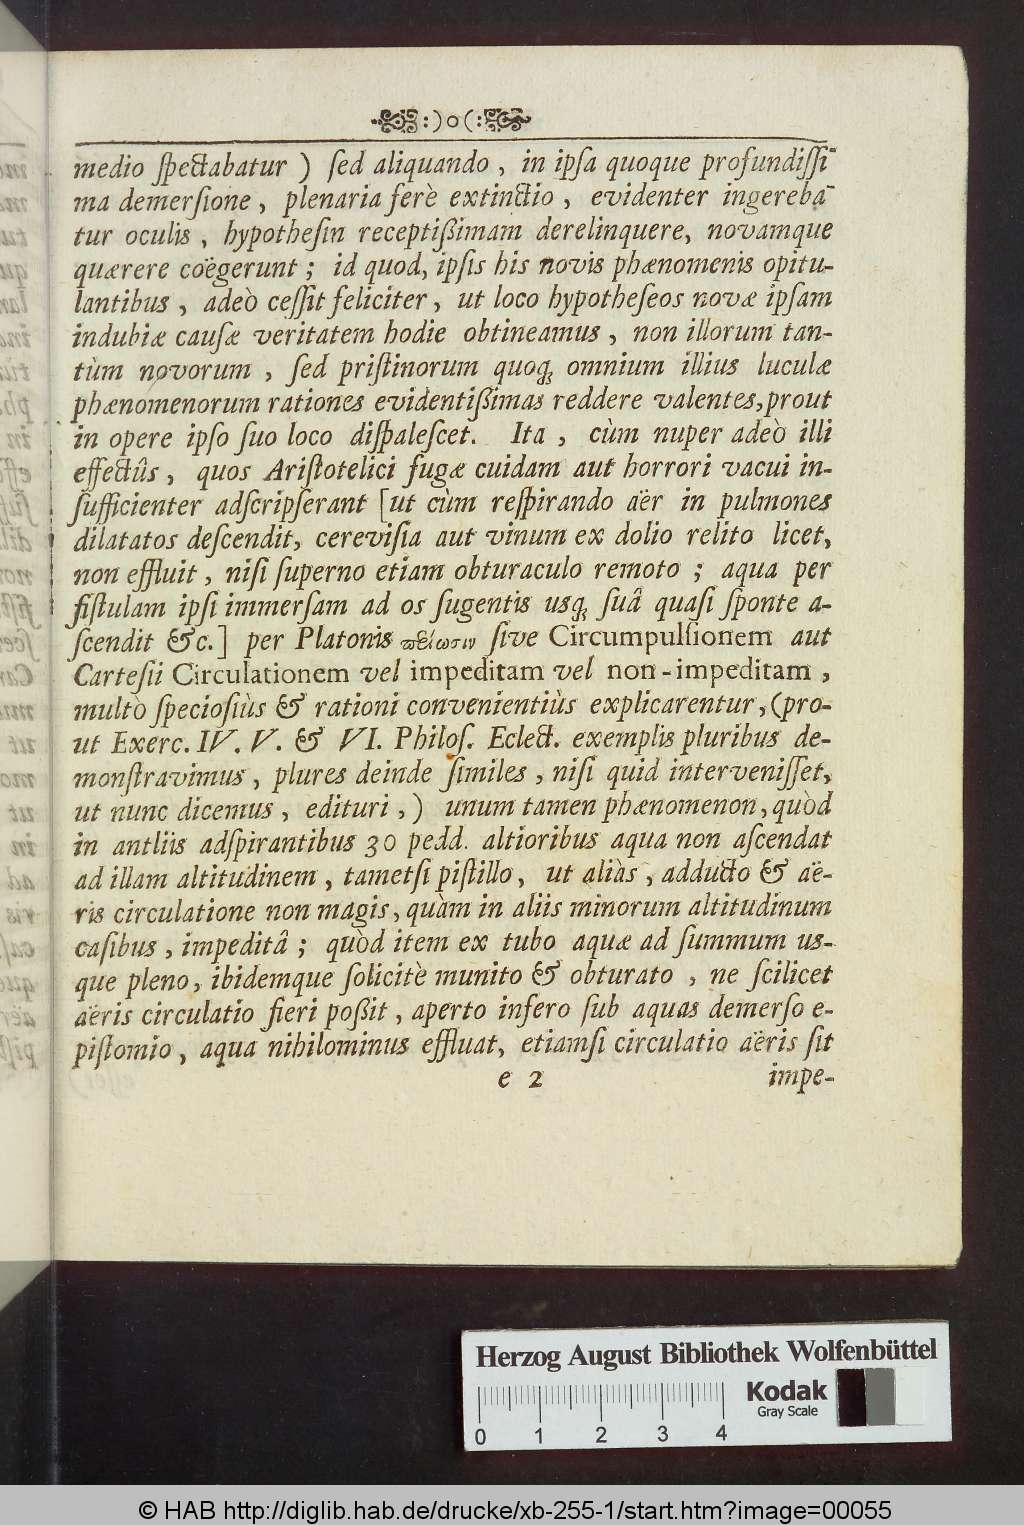 :)o(:
medio ſpectabatur ) ſed aliquando , in ipſa quoque profundiſſi-
ma demerſione , plenaria ferè extinctio , evidenter ingereba-
tur oculis , hypotheſin receptißimam derelinquere, novamque
quærere coëgerunt ; id quod, ipſis his novis phænomenis opitu-
lantibus , adeò ceſſit feliciter, ut loco hypotheſeos novæ ipſam
indubiæ cauſæ veritatem hodie obtineamus , non illorum tan-
tùm novorum , ſed priſtinorum quoq; omnium illius luculæ
phænomenorum rationes evidentißimas reddere valentes,prout
in opere ipſo ſuo loco diſpaleſcet. Ita , cùm nuper adeò illi
effectûs , quos Ariſtotelici fugæ cuidam aut horrori vacui in-
ſufficienter adſcripſerant [ut cùm reſpirando aër in pulmones
dilatatos deſcendit, cereviſia aut vinum ex dolio relito licet,
non effluit , niſi ſuperno etiam obturaculo remoto ; aqua per
fiſtulam ipſi immerſam ad os ſugentis usq; ſuâ quaſi ſponte a-
ſcendit &c.] per Platonis ſive Circumpulſionem aut
Carteſii Circulationem vel impeditam vel non-impeditam ,
multò ſpecioſiùs & rationi convenientiùs explicarentur, (pro-
ut Exerc. IV. V. & VI. Philoſ. Eclect. exemplis pluribus de-
monſtravimus , plures deinde ſimiles , niſi quid interveniſſet,
ut nunc dicemus , edituri , ) unum tamen phænomenon, quòd
in antliis adſpirantibus 30 pedd. altioribus aqua non aſcendat
ad illam altitudinem , tametſi piſtillo, ut aliàs , adducto & aë-
ris circulatione non magis, quàm in aliis minorum altitudinum
caſibus , impeditâ ; quòd item ex tubo aquæ ad ſummum us-
que pleno, ibidemque ſolicitè munito & obturato , ne ſcilicet
aëris circulatio fieri poßit , aperto infero ſub aquas demerſo e-
piſtomio , aqua nihilominus effluat, etiamſi circulatio aëris ſit
e 2 impe-
Herzog August Bibliothek Wolfenbüttel
Kodak
Gray Scale
0 1 2 3 4
© HAB http://diglib.hab.de/drucke/xb-255-1/start.htm?image=00055